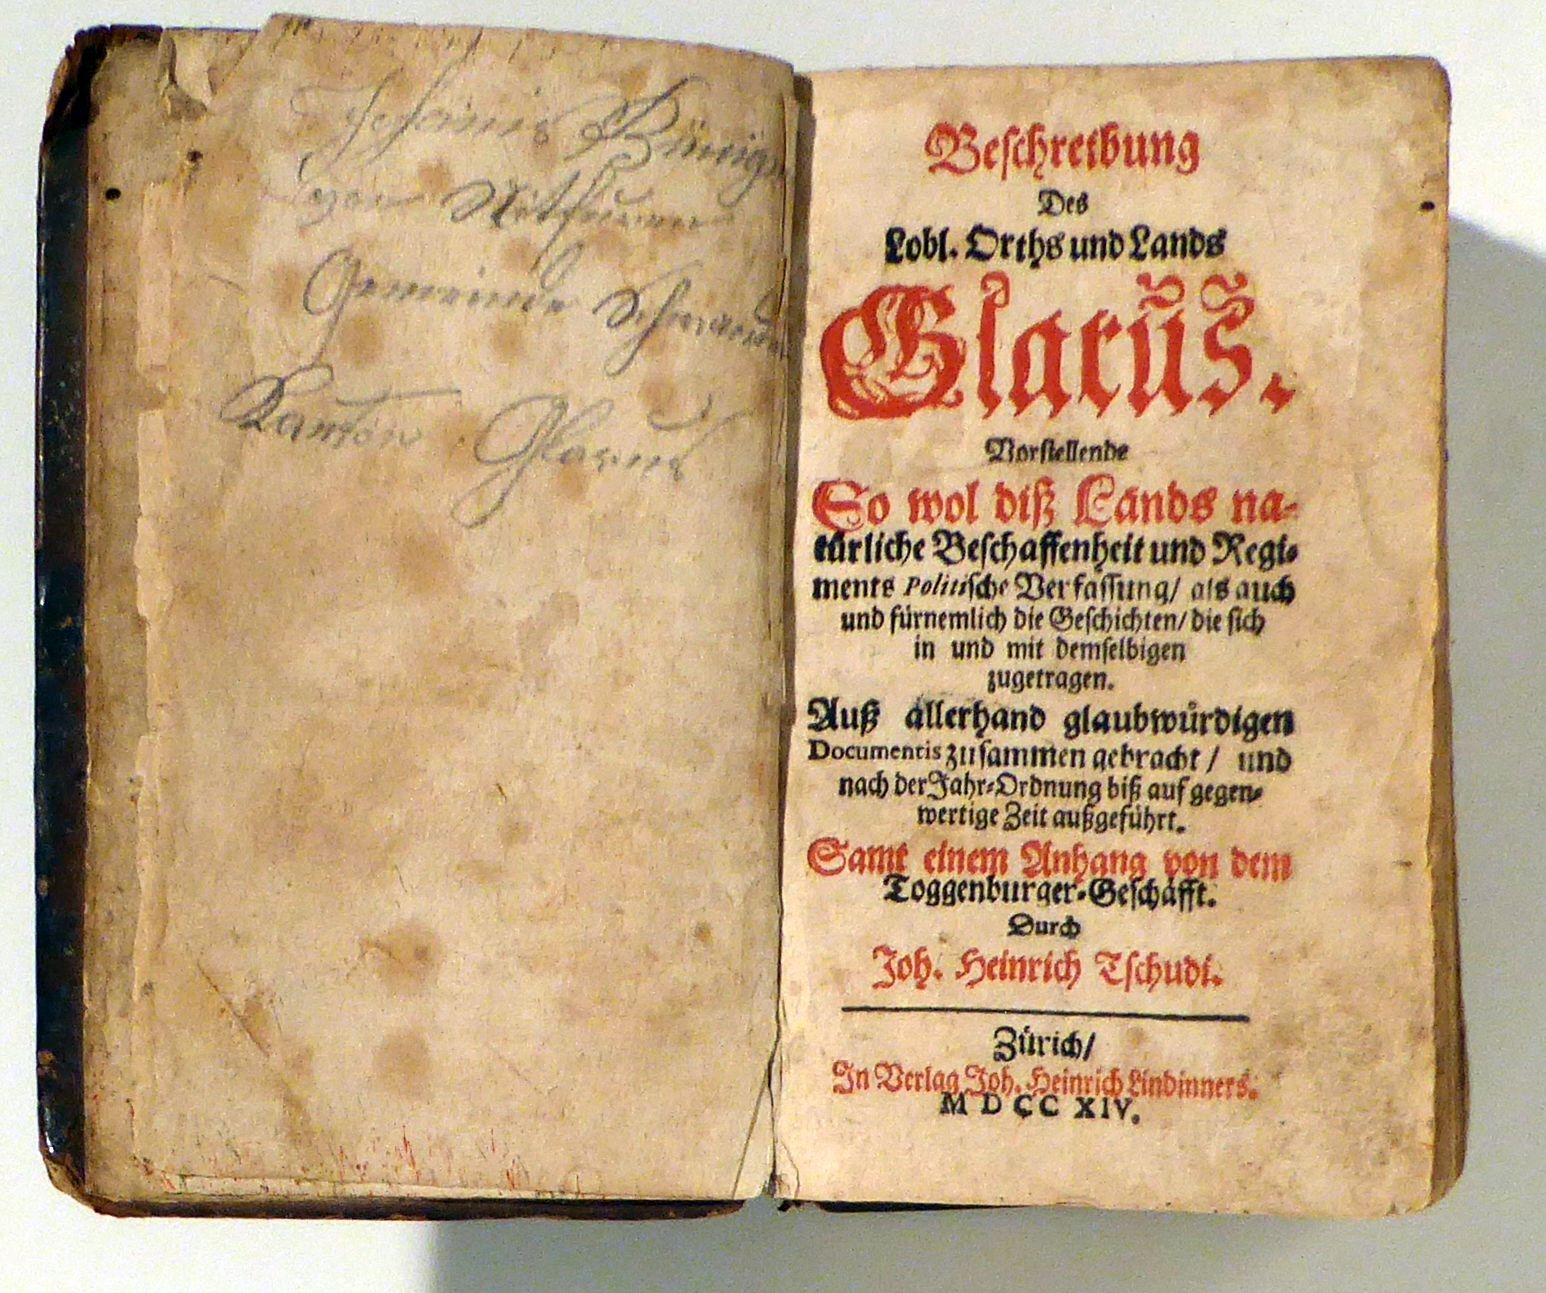 von Nitfurn
Gemeinde Schwanden
Kanton Glarus
Beschreibung
Des
Lobl. Orths und Lands
Glarus.
Vorstellende
So wol diß Lands na-
türliche Beschaffenheit und Regi-
ments Politische Verfassung/ als auch
und fürnemlich die Geschichten/ die sich
in und mit demselbigen
zugetragen.
Auß allerhand glaubwürdigen
Documentis zusammen gebracht / und
nach der Jahr-Ordnung biß auf gegen-
wertige Zeit außgeführt.
Samt einem Anhang von dem
Toggenburger-Geschäfft.
Durch
Joh. Heinrich Tschudi.
Zürich/
In Verlag Joh. Heinrich Lindinners.
MDCCXIV.